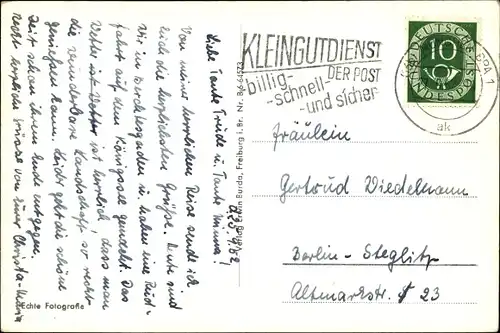 Liebe Tante Trude u. Tante Minna!
Von meiner herrlichen Reise sende ich
Euch die herzlichsten Grüße. Heute sind
wir in Berchtesgaden u. haben eine Rund-
fahrt auf dem Königssee gemacht. Das
Wetter ist herrlich, dass man
die wunderbare Landschaft so recht
genießen kann. Leider geht die schöne
Zeit schon ihrem Ende entgegen.
Recht herzliche Grüsse von Eurer Christa-Maria
Echte Fotografie
Verlag Erwin Burda, Freiburg i. Br. Nr.
KLEINGUTDIENST
DER POST
billig-
-schnell-
-und sicher
DEUTSCHE
BUNDESPOST
10
ak
Fräulein
Gertrud Wiedelmann
Berlin - Steglitz
Altmarkstr. 23